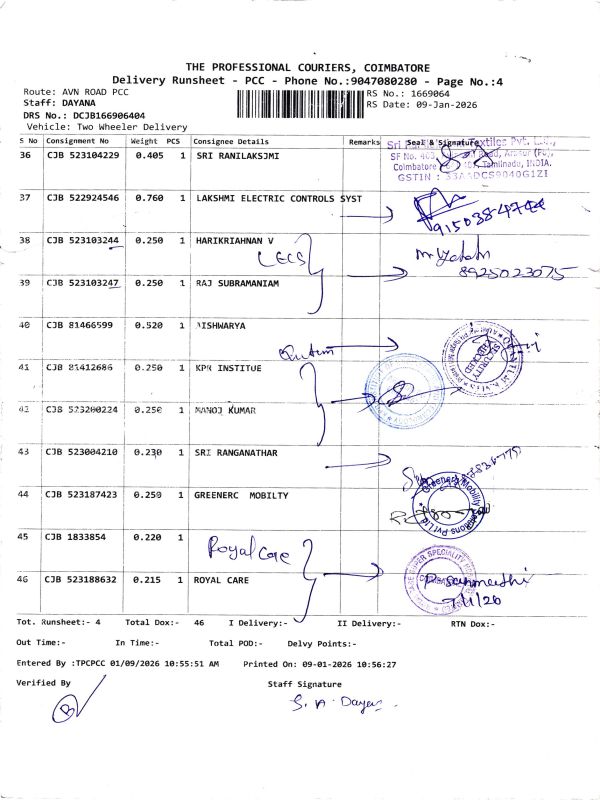 THE PROFESSIONAL COURIERS, COIMBATORE
Delivery Runsheet - PCC - Phone No.:9047080280 - Page No.:4
Route: AVN ROAD PCC
RS No.: 1669064
Staff: DAYANA
RS Date: 09-Jan-2026
DRS No.: DCJB166906404
Vehicle: Two Wheeler Delivery
S No Consignment No Weight PCS Consignee Details Remarks Seal & Signature
36 CJB 523104229 0.405 1 SRI RANILAKSJMI
Textiles Pvt.
SF No. Road,
Coimbatore Tamilnadu, INDIA.
GSTIN :
37 CJB 522924546 0.760 1 LAKSHMI ELECTRIC CONTROLS SYST
38 CJB 523103244 0.250 1 HARIKRIAHNAN V
LECS
8925023075
39 CJB 523103247 0.250 1 RAJ SUBRAMANIAM
40 CJB 81466599 0.520 1 AISHWARYA
41 CJB 81412686 0.250 1 KPR INSTITUE
42 CJB 523200224 0.250 1 MANOJ KUMAR
43 CJB 523004210 0.230 1 SRI RANGANATHAR
44 CJB 523187423 0.250 1 GREENERC MOBILTY
Greenerc Mobility Solutions Pvt Ltd
45 CJB 1833854 0.220 1
Royal Care
46 CJB 523188632 0.215 1 ROYAL CARE
Tot. Runsheet:- 4 Total Dox:- 46 I Delivery:- II Delivery:- RTN Dox:-
Out Time:- In Time:- Total POD:- Delvy Points:-
Entered By :TPCPCC 01/09/2026 10:55:51 AM Printed On: 09-01-2026 10:56:27
Verified By Staff Signature